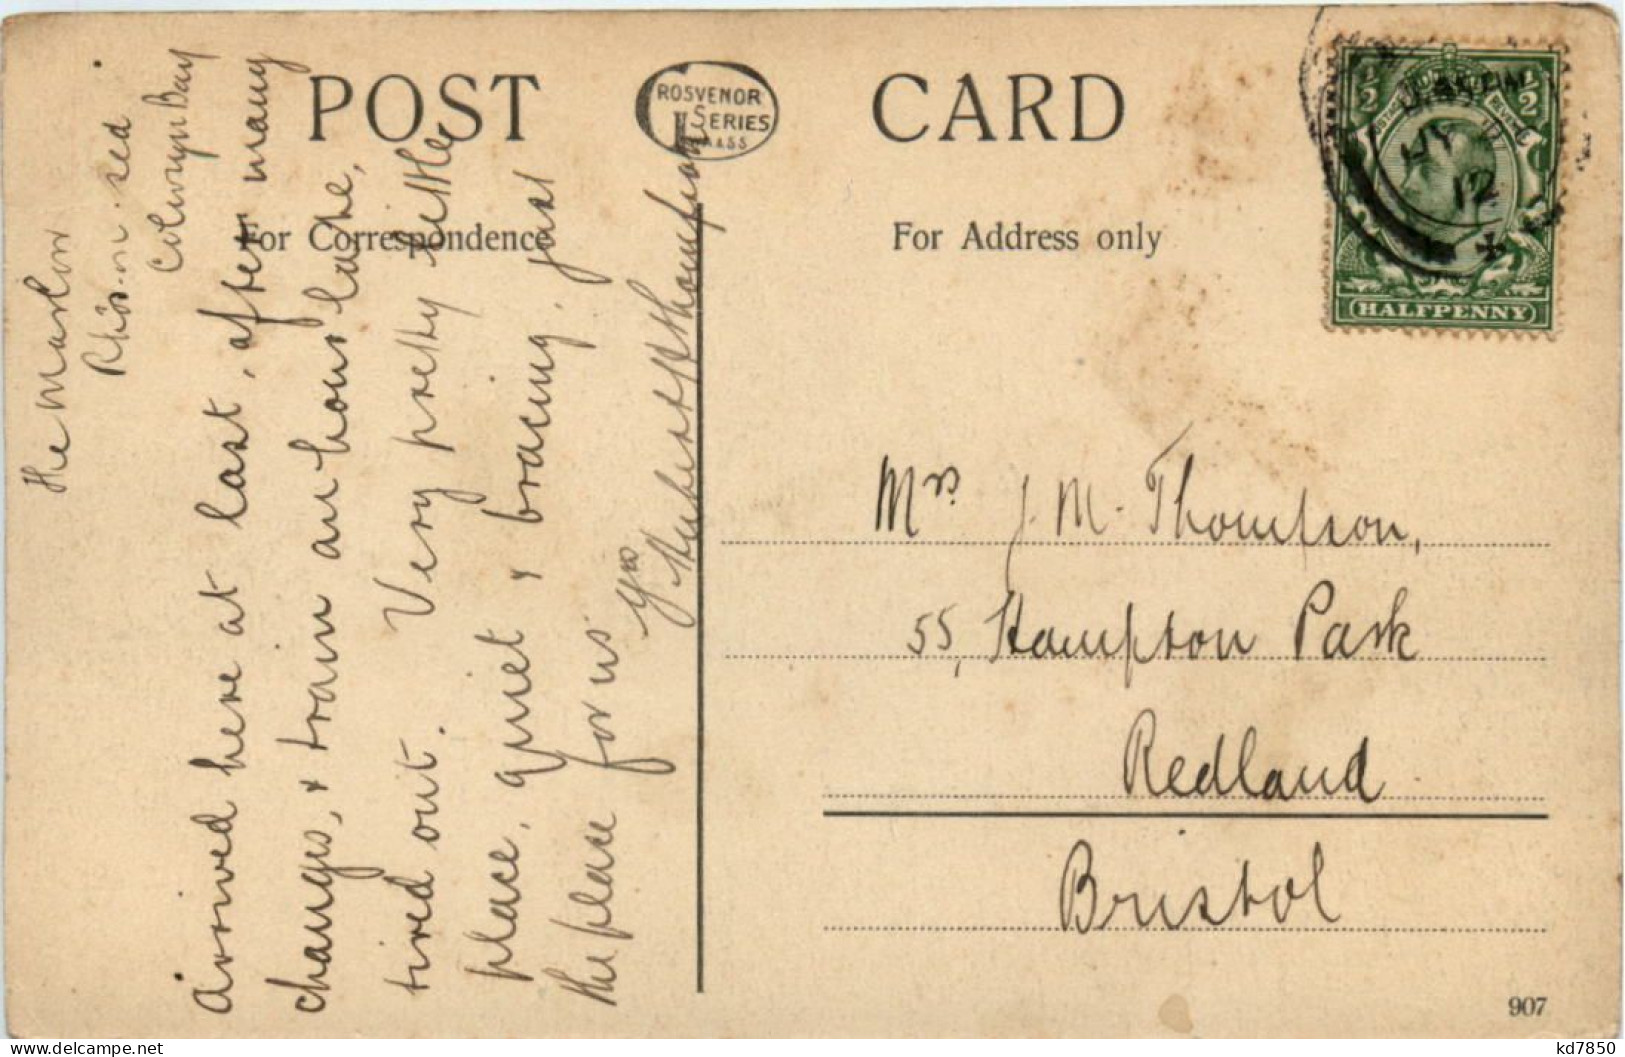 POST CARD
GROSVENOR
SERIES
For Correspondence
For Address only
1/2 1/2
12
HALFPENNY
Rhos-on-sea
Colwyn Bay
Arrived here at last, after many
changes, & train an hour late,
tired out. Very pretty little
place, quiet & bracing, just
the place for us
Yrs
Mrs J. M. Thompson,
55, Hampton Park
Redland
Bristol
907
delcampe.net
kd7850